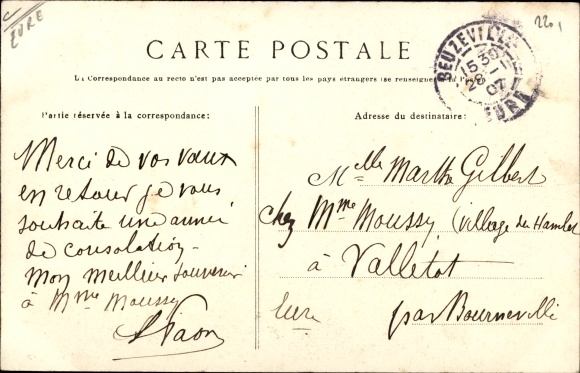 EURE
2201
CARTE POSTALE
La Correspondance au recto n'est pas acceptée par tous les pays étrangers (se renseigner à la Poste
BEUZEVILLE
15 30
28 - 1
07
EURE
Partie réservée à la correspondance:
Adresse du destinataire:
Merci de vos vœux
en retour je vous
souhaite une année
de consolation -
Mon meilleur souvenir
à Mme Moussy
Melle Marthe Gilbert
chez Mme Moussy (village du Hamelet
à Valletot
par Bourneville
Eure